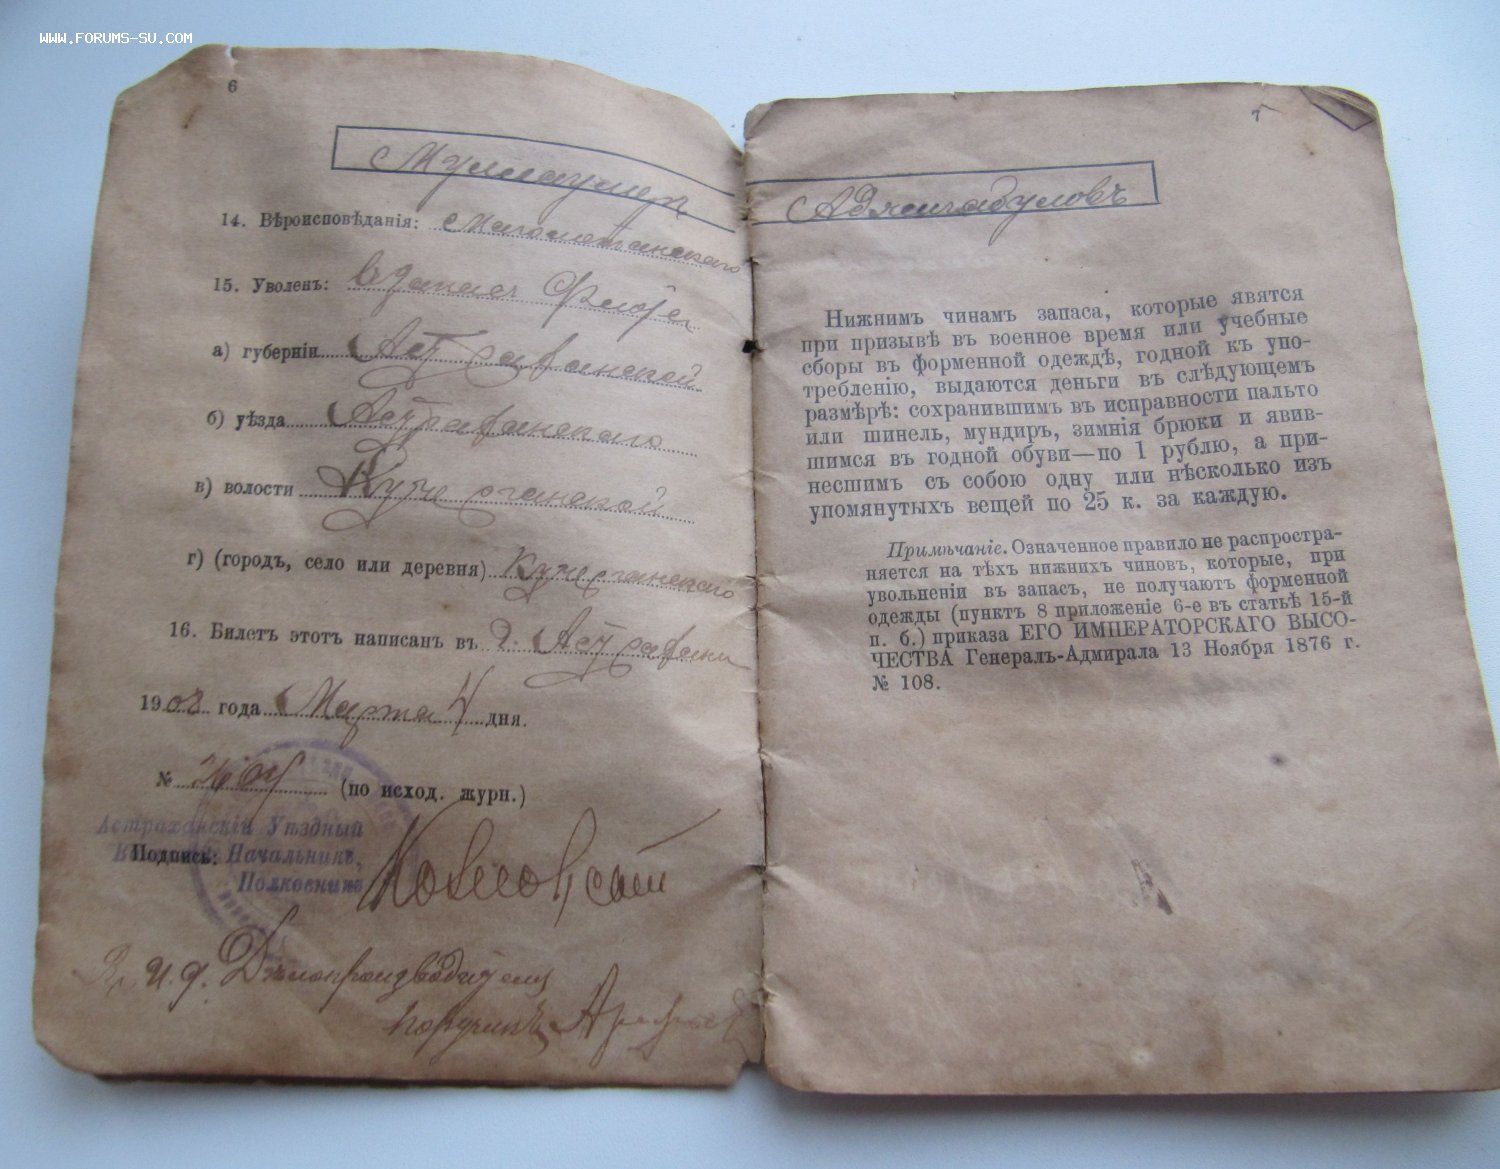 WWW.FORUMS-SU.COM
6
14. Вѣроисповѣданія: Магометанскаго
15. Уволенъ: Въ запасъ Флота
а) губерніи Астраханской
б) уѣзда Астраханскаго
в) волости
г) (городъ, село или деревня)
16. Билетъ этотъ написанъ въ г. Астрахани
1908 года Марта 4 дня.
№ (по исход. журн.)
Астраханскій Уѣздный
Подпись: Начальникъ,
Полковникъ
И. д. Дѣлопроизводителя
Поручикъ
7
Аджигабуловъ
Нижнимъ чинамъ запаса, которые явятся
при призывѣ въ военное время или учебные
сборы въ форменной одеждѣ, годной къ упо-
требленію, выдаются деньги въ слѣдующемъ
размѣрѣ: сохранившимъ въ исправности пальто
или шинель, мундиръ, зимнія брюки и явив-
шимся въ годной обуви—по 1 рублю, а при-
несшимъ съ собою одну или нѣсколько изъ
упомянутыхъ вещей по 25 к. за каждую.
Примѣчаніе. Означенное правило не распростра-
няется на тѣхъ нижнихъ чиновъ, которые, при
увольненіи въ запасъ, не получаютъ форменной
одежды (пунктъ 8 приложеніе 6-е въ статьѣ 15-й
п. б.) приказа ЕГО ИМПЕРАТОРСКАГО ВЫСО-
ЧЕСТВА Генералъ-Адмирала 13 Ноября 1876 г.
№ 108.